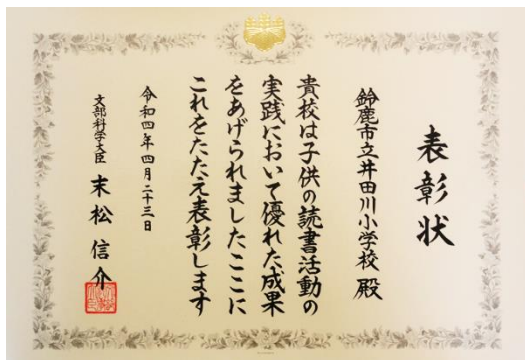 表彰状
鈴鹿市立井田川小学校 殿
貴校は子供の読書活動の
実践において優れた成果
をあげられましたここに
これをたたえ表彰します
令和四年四月二十三日
文部科学大臣 末松信介